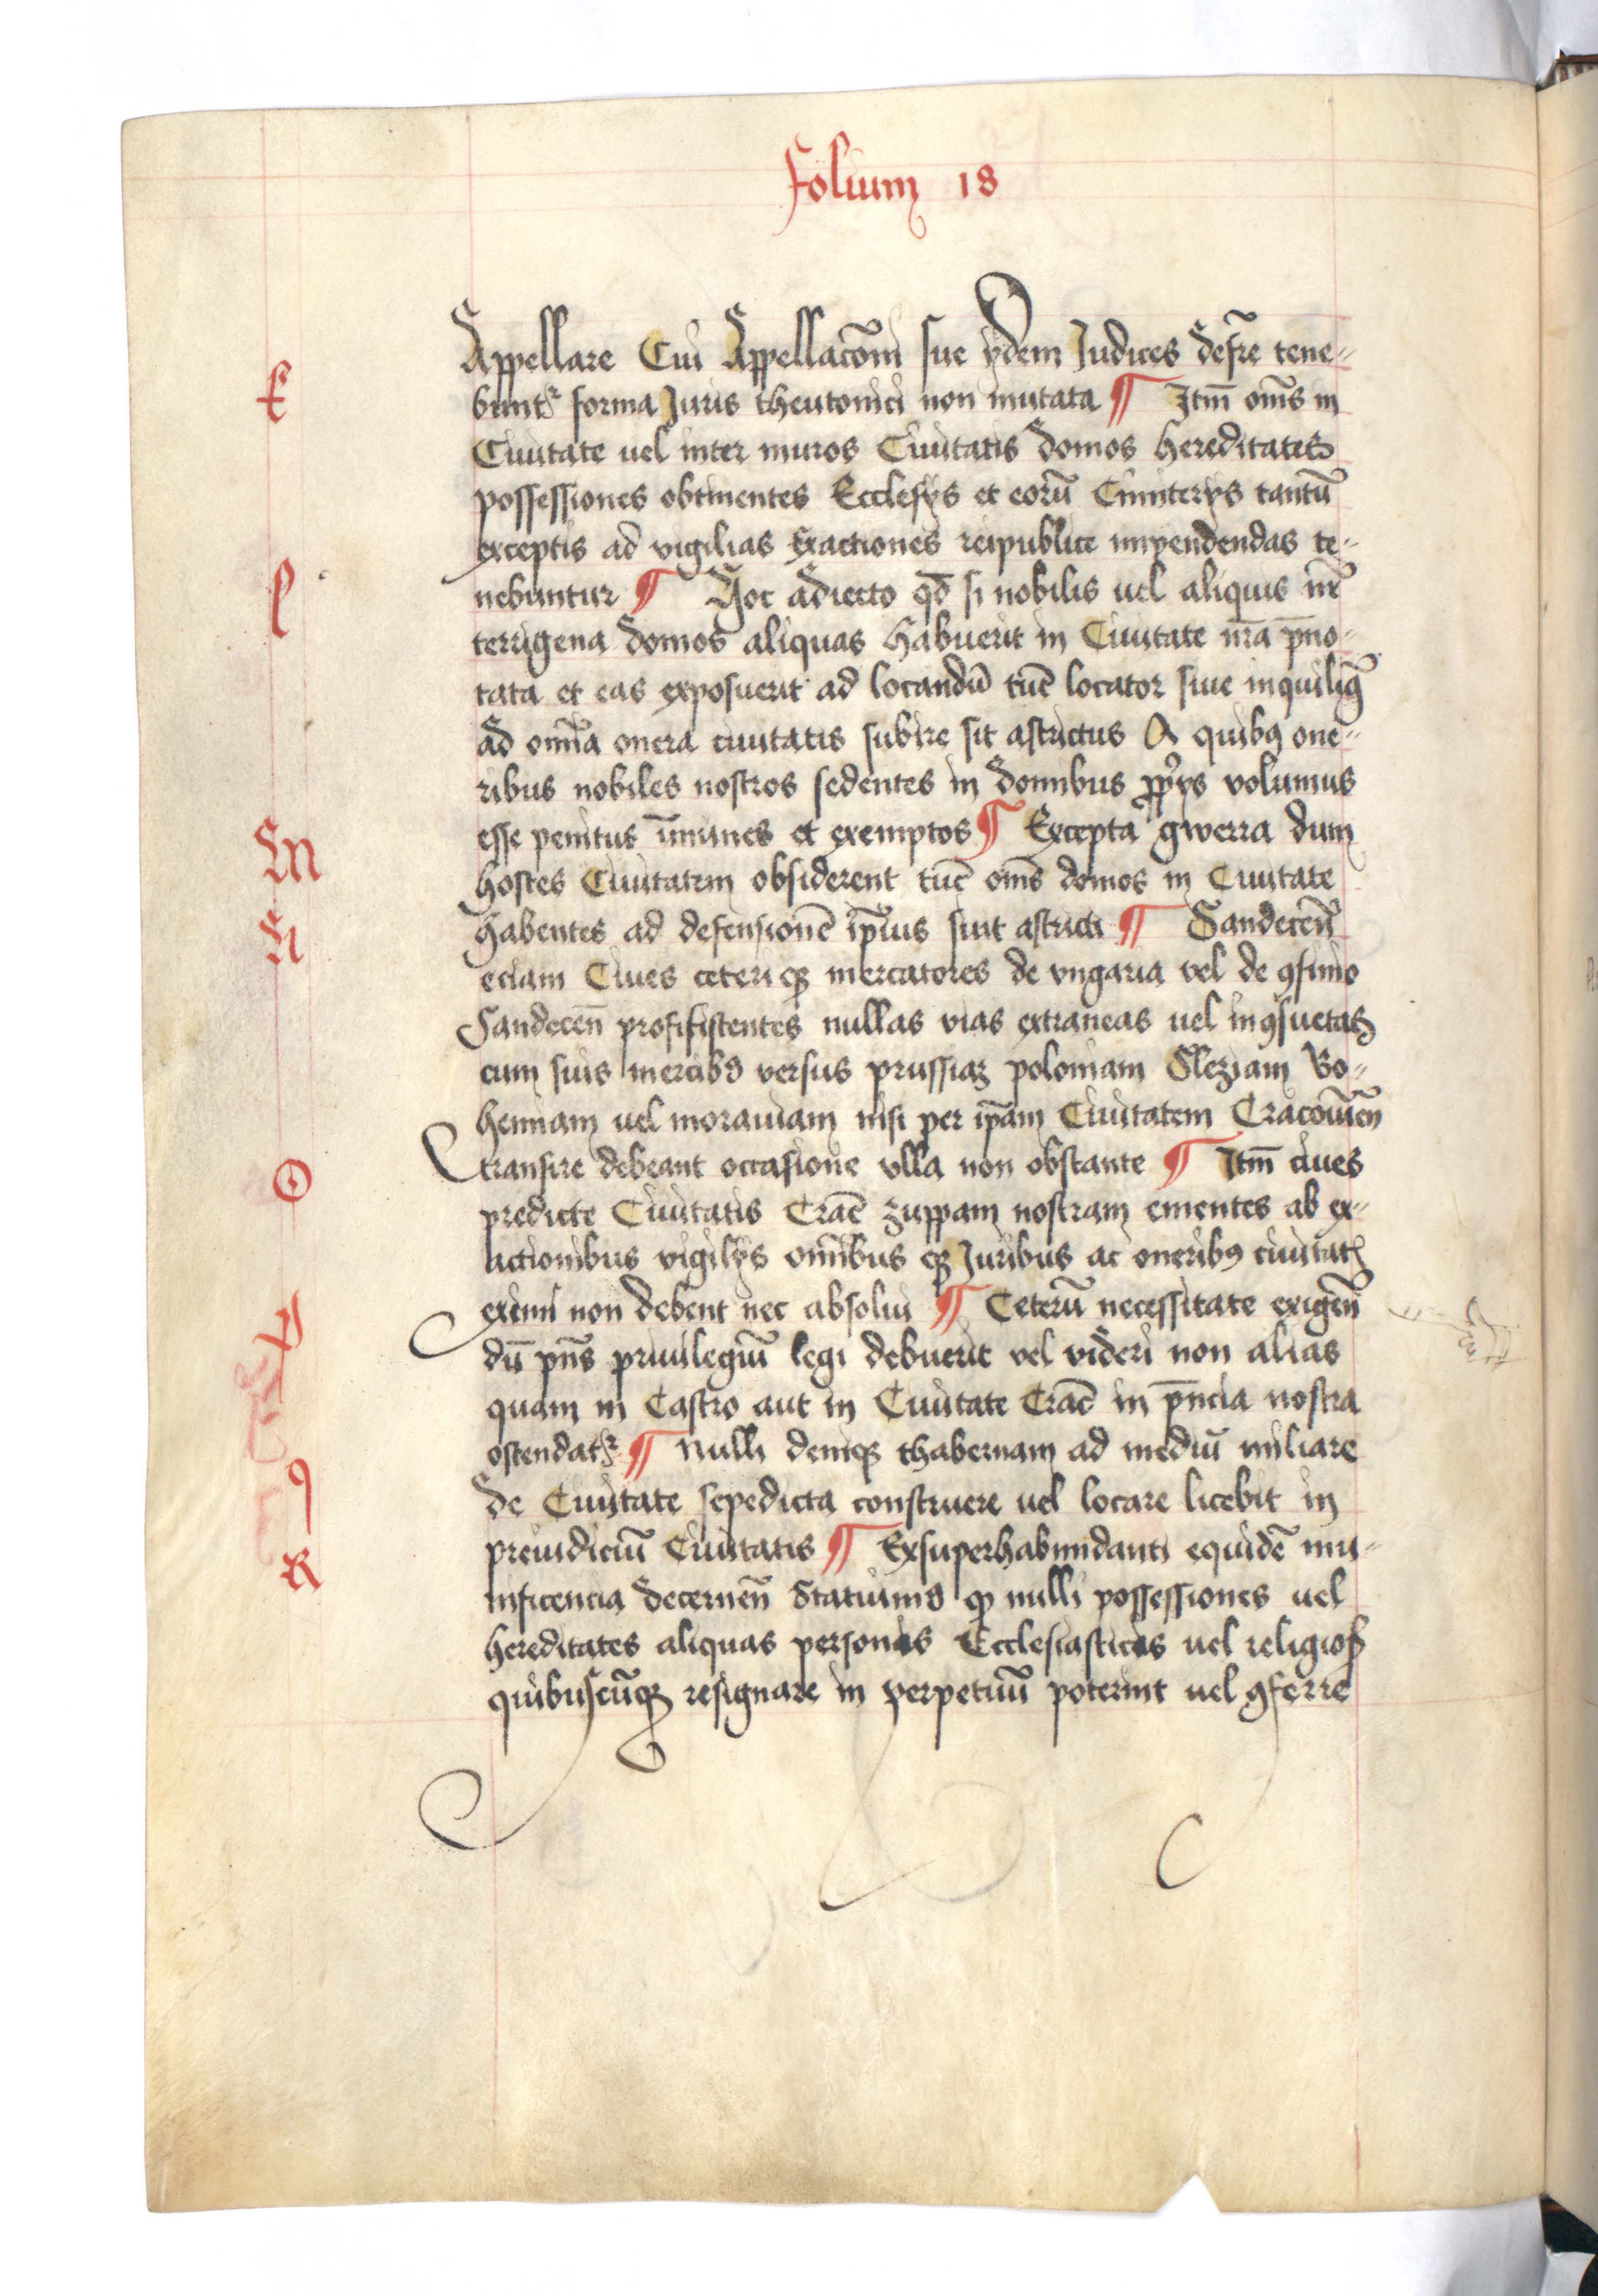 folium 18
Appellare Cui Appellac̄oni sue ydem Judices def̄re tene=
K
bunt᷑ forma Juris theutonici non mutata ¶ Itm̄ om̄s in
Ciuitate uel inter muros Ciuitatis domos hereditates
possessiones obtinentes Ecclesÿs et eorū Cimiterÿs tantū
exceptis ad vigilias Exactiones reipublice impendendas te=
l
nebuntur ¶ Hoc adiecto qđ si nobilis uel aliquis nr̄
terrigena domos aliquas habuerit in Ciuitate nr̄a p̄no=
tata et eas exposuerit ad locandū tūc locator siue inquiliꝰ
ad omīa onera ciuitatis subire sit astrictus A quibꝰ one=
ribus nobiles nostros sedentes in domibus ꝓprÿs volumus
M
esse penitus īmunes et exemptos ¶ Excepta gwerra dum
hostes Ciuitatem obsiderent tūc om̄s domos in Ciuitate
N
habentes ad defensionē ip̄ius sint astricti ¶ Sandecen̄
eciam Ciues ceteriqꝫ mercatores de vngaria vel de ꝯfinio
Sandecen̄ profisistentes nullas vias extraneas uel inꝯsuetas
cum suis mercibꝰ versus prussiaꝫ poloniam Sleziam Bo=
hemiam uel morauiam nisi per ip̄am Ciuitatem Cracouien̄
O
transire debeant occasione vlla non obstante ¶ Itm̄ ciues
predicte Ciuitatis Crac̄ zuppam nostram ementes ab ex=
actionibus vigilÿs omībusqꝫ Juribus ac oneribꝰ ciuitatꝭ
P
eximi non debent nec absolui ¶ Ceterū necessitate exigen̄
dū pn̄s priuilegiū legi debuerit vel videri non alias
quam in Castro aut in Ciuitate Crac̄ in p̄ncia nostra
q
ostendat᷑ ¶ Nulli deniqꝫ thabernam ad mediū miliare
de Ciuitate sepedicta construere uel locare licebit in
R
preiudiciū Ciuitatis ¶ Exsuperhabundanti equidē mu=
nificencia decernen̄ Statuimꝰ ꝙ nulli possessiones uel
hereditates aliquas personis Ecclesiasticis uel religioꝭ
quibuscūqꝫ resignare in perpetuū poterint uel ꝯferre